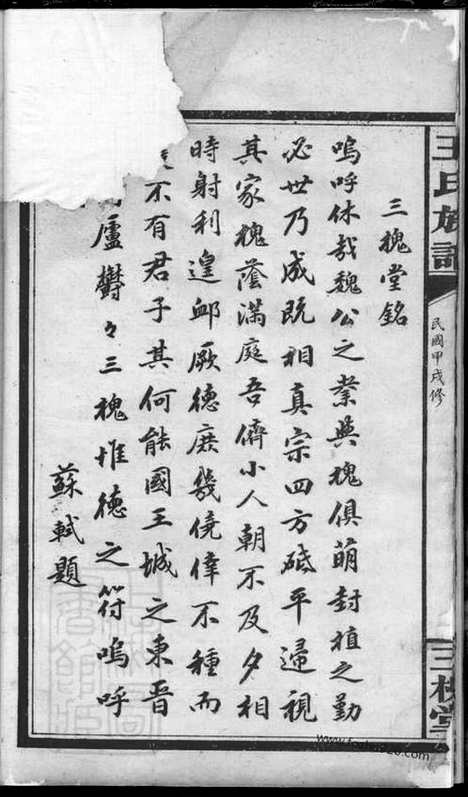 王氏族譜
民國甲戌修
三槐堂
三槐堂銘
嗚呼休哉魏公之業與槐俱萌封植之勤
必世乃成既相真宗四方砥平歸視
其家槐蔭滿庭吾儕小人朝不及夕相
時射利遑卹厥德庶幾僥倖不種而
不有君子其何能國王城之東晉
廬鬱々三槐惟德之符嗚呼
蘇軾題